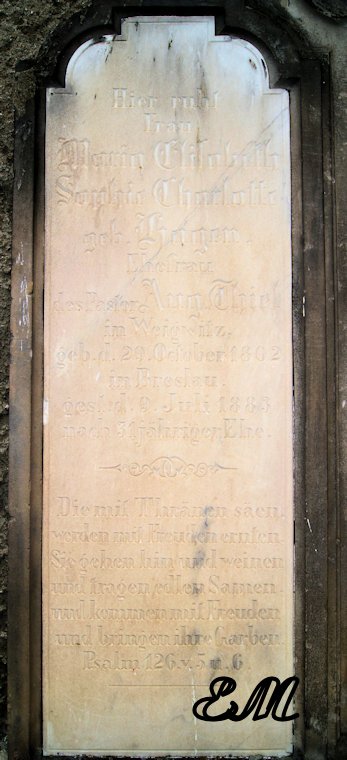 Hier ruht
Frau
Maria Elisabeth
Sophie Charlotte
geb. Hagen.
Ehefrau
des Pastor Aug. Thiel
in Weigwitz,
geb. d. 29. October 1802
in Breslau.
gest. d. 9. Juli 1883
nach 51jähriger Ehe.
Die mit Thränen säen,
werden mit Freuden ernten.
Sie gehen hin und weinen
und tragen edlen Samen
und kommen mit Freuden
und bringen ihre Garben.
Psalm 126. v. 5 u. 6.
EM